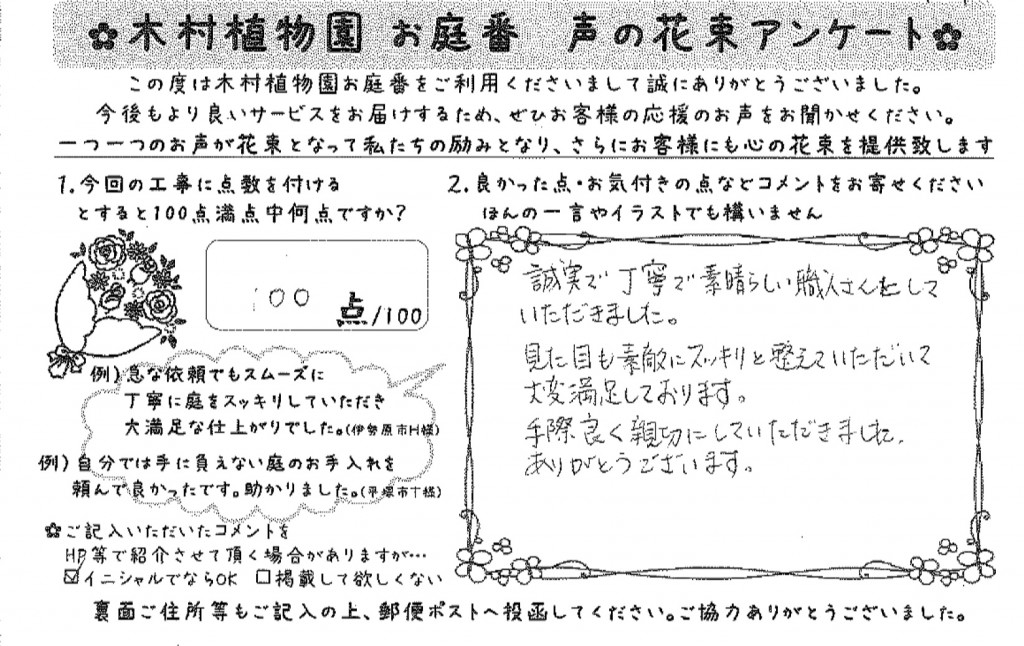 木村植物園 お庭番 声の花束アンケート
この度は木村植物園お庭番をご利用くださいまして誠にありがとうございました。
今後もより良いサービスをお届けするため、ぜひお客様の応援のお声をお聞かせください。
一つ一つのお声が花束となって私たちの励みとなり、さらにお客様にも心の花束を提供致します
1.今回の工事に点数を付ける
とすると100点満点中何点ですか?
100
点/100
例)急な依頼でもスムーズに
丁寧に庭をスッキリしていただき
大満足な仕上がりでした。(伊勢原市H様)
例)自分では手に負えない庭のお手入れを
頼んで良かったです。助かりました。(平塚市T様)
✿ご記入いただいたコメントを
HP等で紹介させて頂く場合がありますが…
☑イニシャルでならOK □掲載して欲しくない
2.良かった点・お気付きの点などコメントをお寄せください
ほんの一言やイラストでも構いません
誠実で丁寧で素晴らしい職人さんたして
いただきました。
見た目も素敵にスッキリと整えていただいて
大変満足しております。
手際良く親切にしていただきました、
ありがとうございます。
裏面ご住所等もご記入の上、郵便ポストへ投函してください。ご協力ありがとうございました。